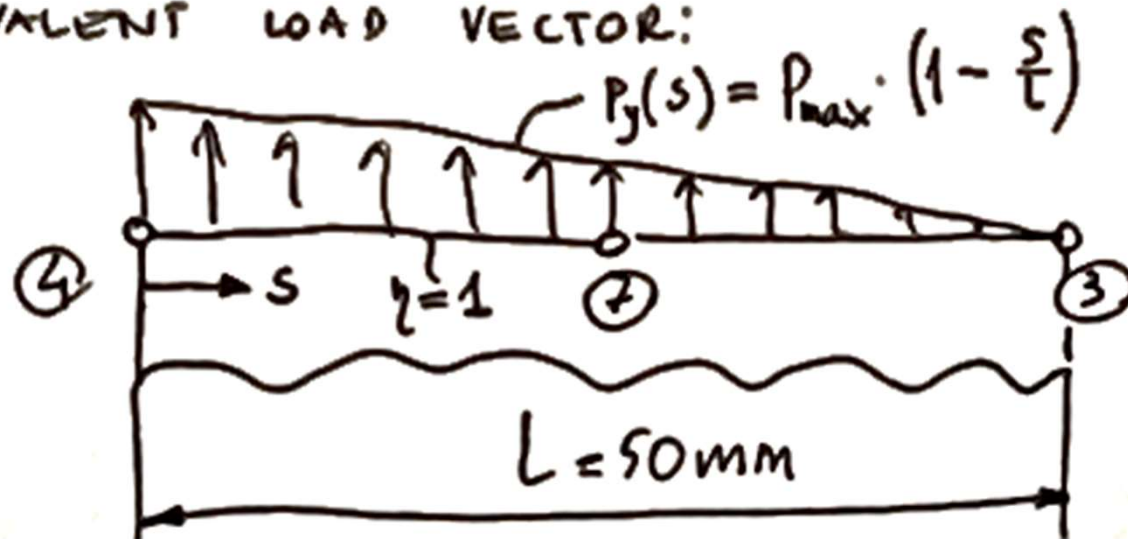 VALENT LOAD VECTOR:
Py(s) = Pmax · (1 - s/L)
4
s
η=1
7
3
L = 50mm